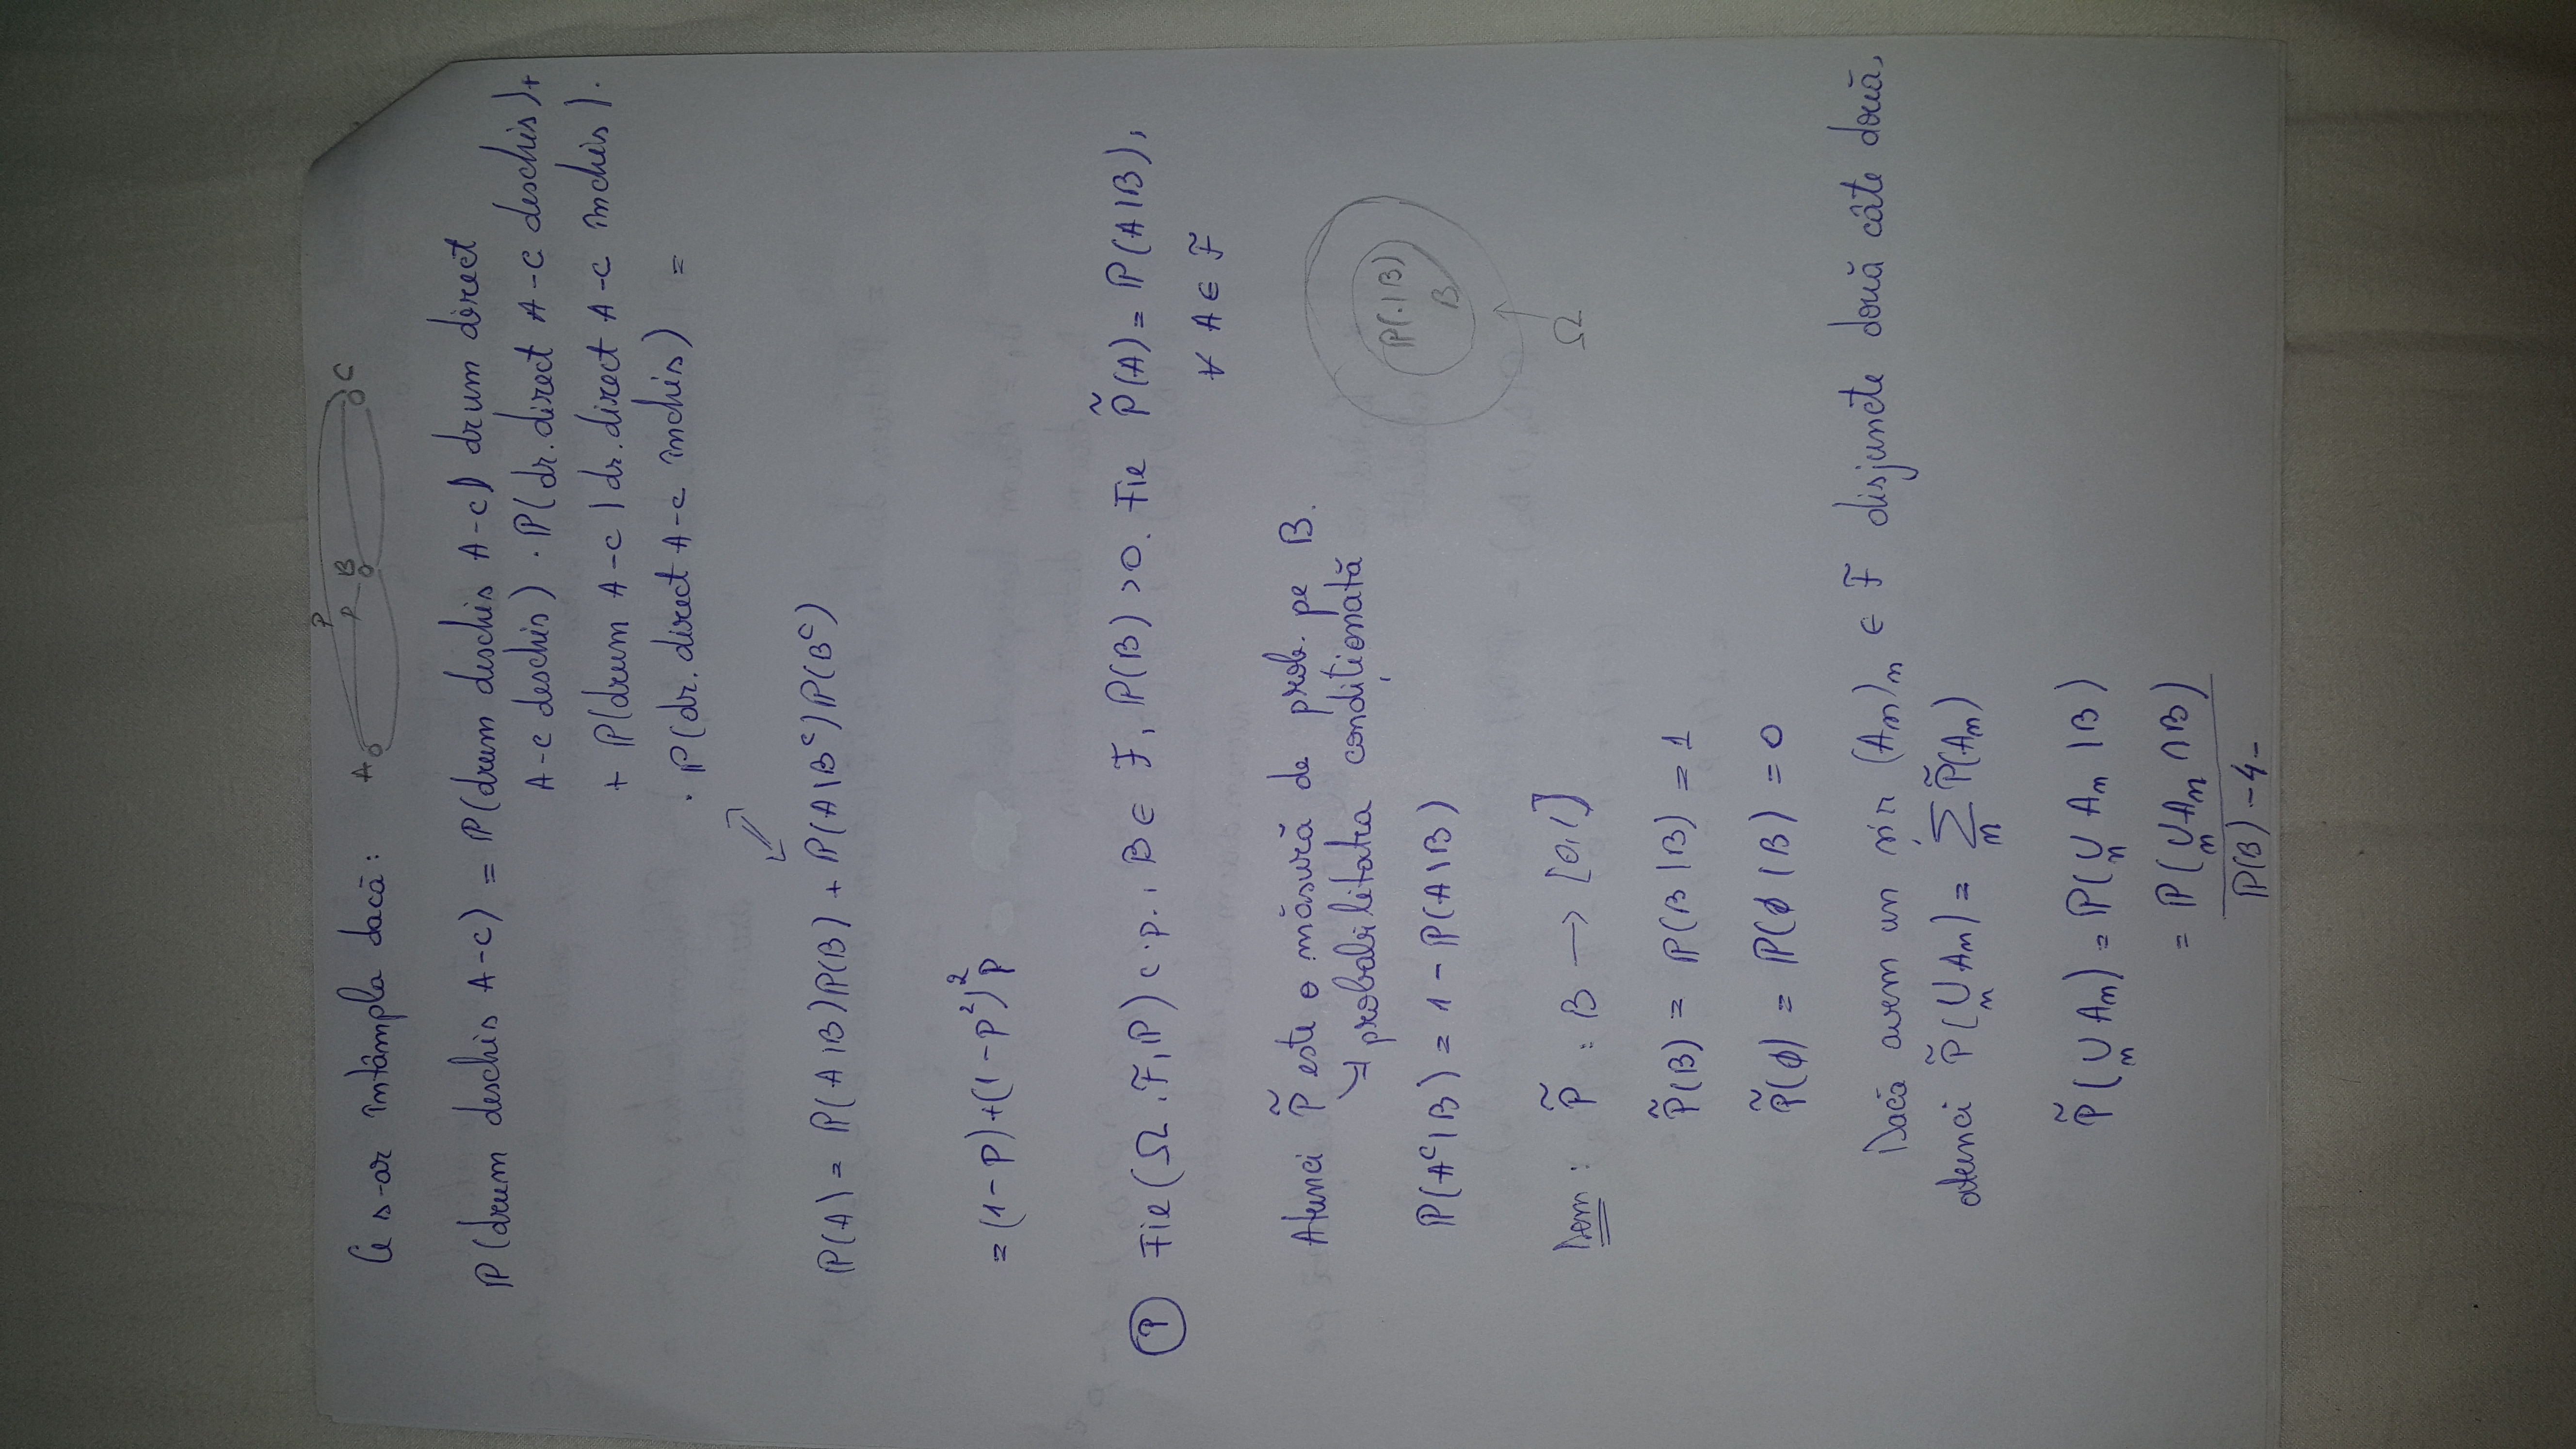 Ce s-ar întâmpla dacă:
P
A P B C
P(drum deschis A-C) = P(drum deschis A-C | drum direct
A-C deschis) · P(dr. direct A-C deschis) +
+ P(drum A-C | dr. direct A-C închis) ·
· P(dr. direct A-C închis) =
P(A) = P(A|B)P(B) + P(A|Bᶜ)P(Bᶜ)
= (1-p)+(1-p²)²p
(P) Fie (Ω, F, P) c.p., B ∈ F, P(B) > 0. Fie P̃(A) = P(A|B),
∀ A ∈ F
Atunci P̃ este o măsură de prob. pe B.
↳ probabilitatea condiționată
P(·|B)
B
P(Aᶜ|B) = 1 - P(A|B)
Ω
Dem: P̃ : B → [0,1]
P̃(B) = P(B|B) = 1
P̃(∅) = P(∅|B) = 0
Dacă avem un șir (Aₙ)ₙ ∈ F disjuncte două câte două,
atunci P̃(∪ₙ Aₙ) = Σₙ P̃(Aₙ)
P̃(∪ₙ Aₙ) = P(∪ₙ Aₙ | B)
= P(∪ₙ Aₙ ∩ B)
P(B) -4-